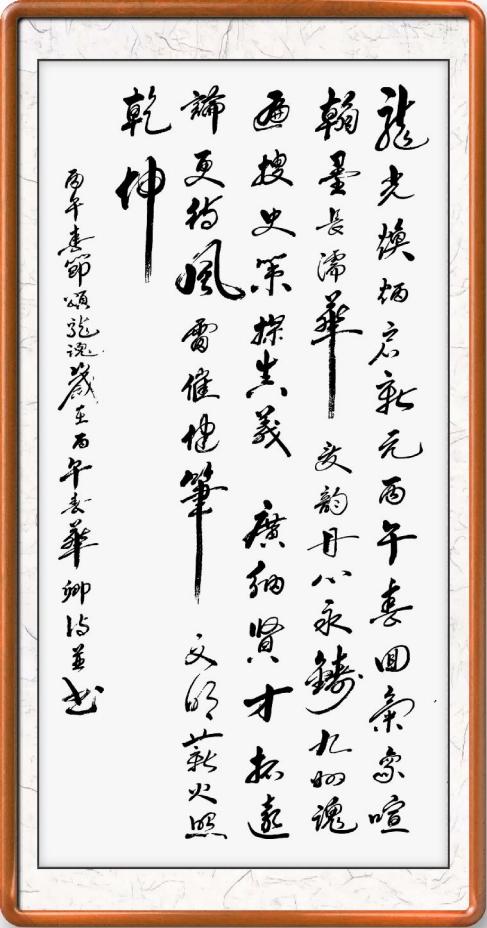 龍光煥炳启新元丙午春回氣象喧
翰墨長濡華夏韵丹心永鑄九州魂
遍搜史策探真義廣納賢才拓遠
論更待風雷催健筆文明薪火照
乾坤
丙午春節頌龍魂歲在丙午春華卿詩並书